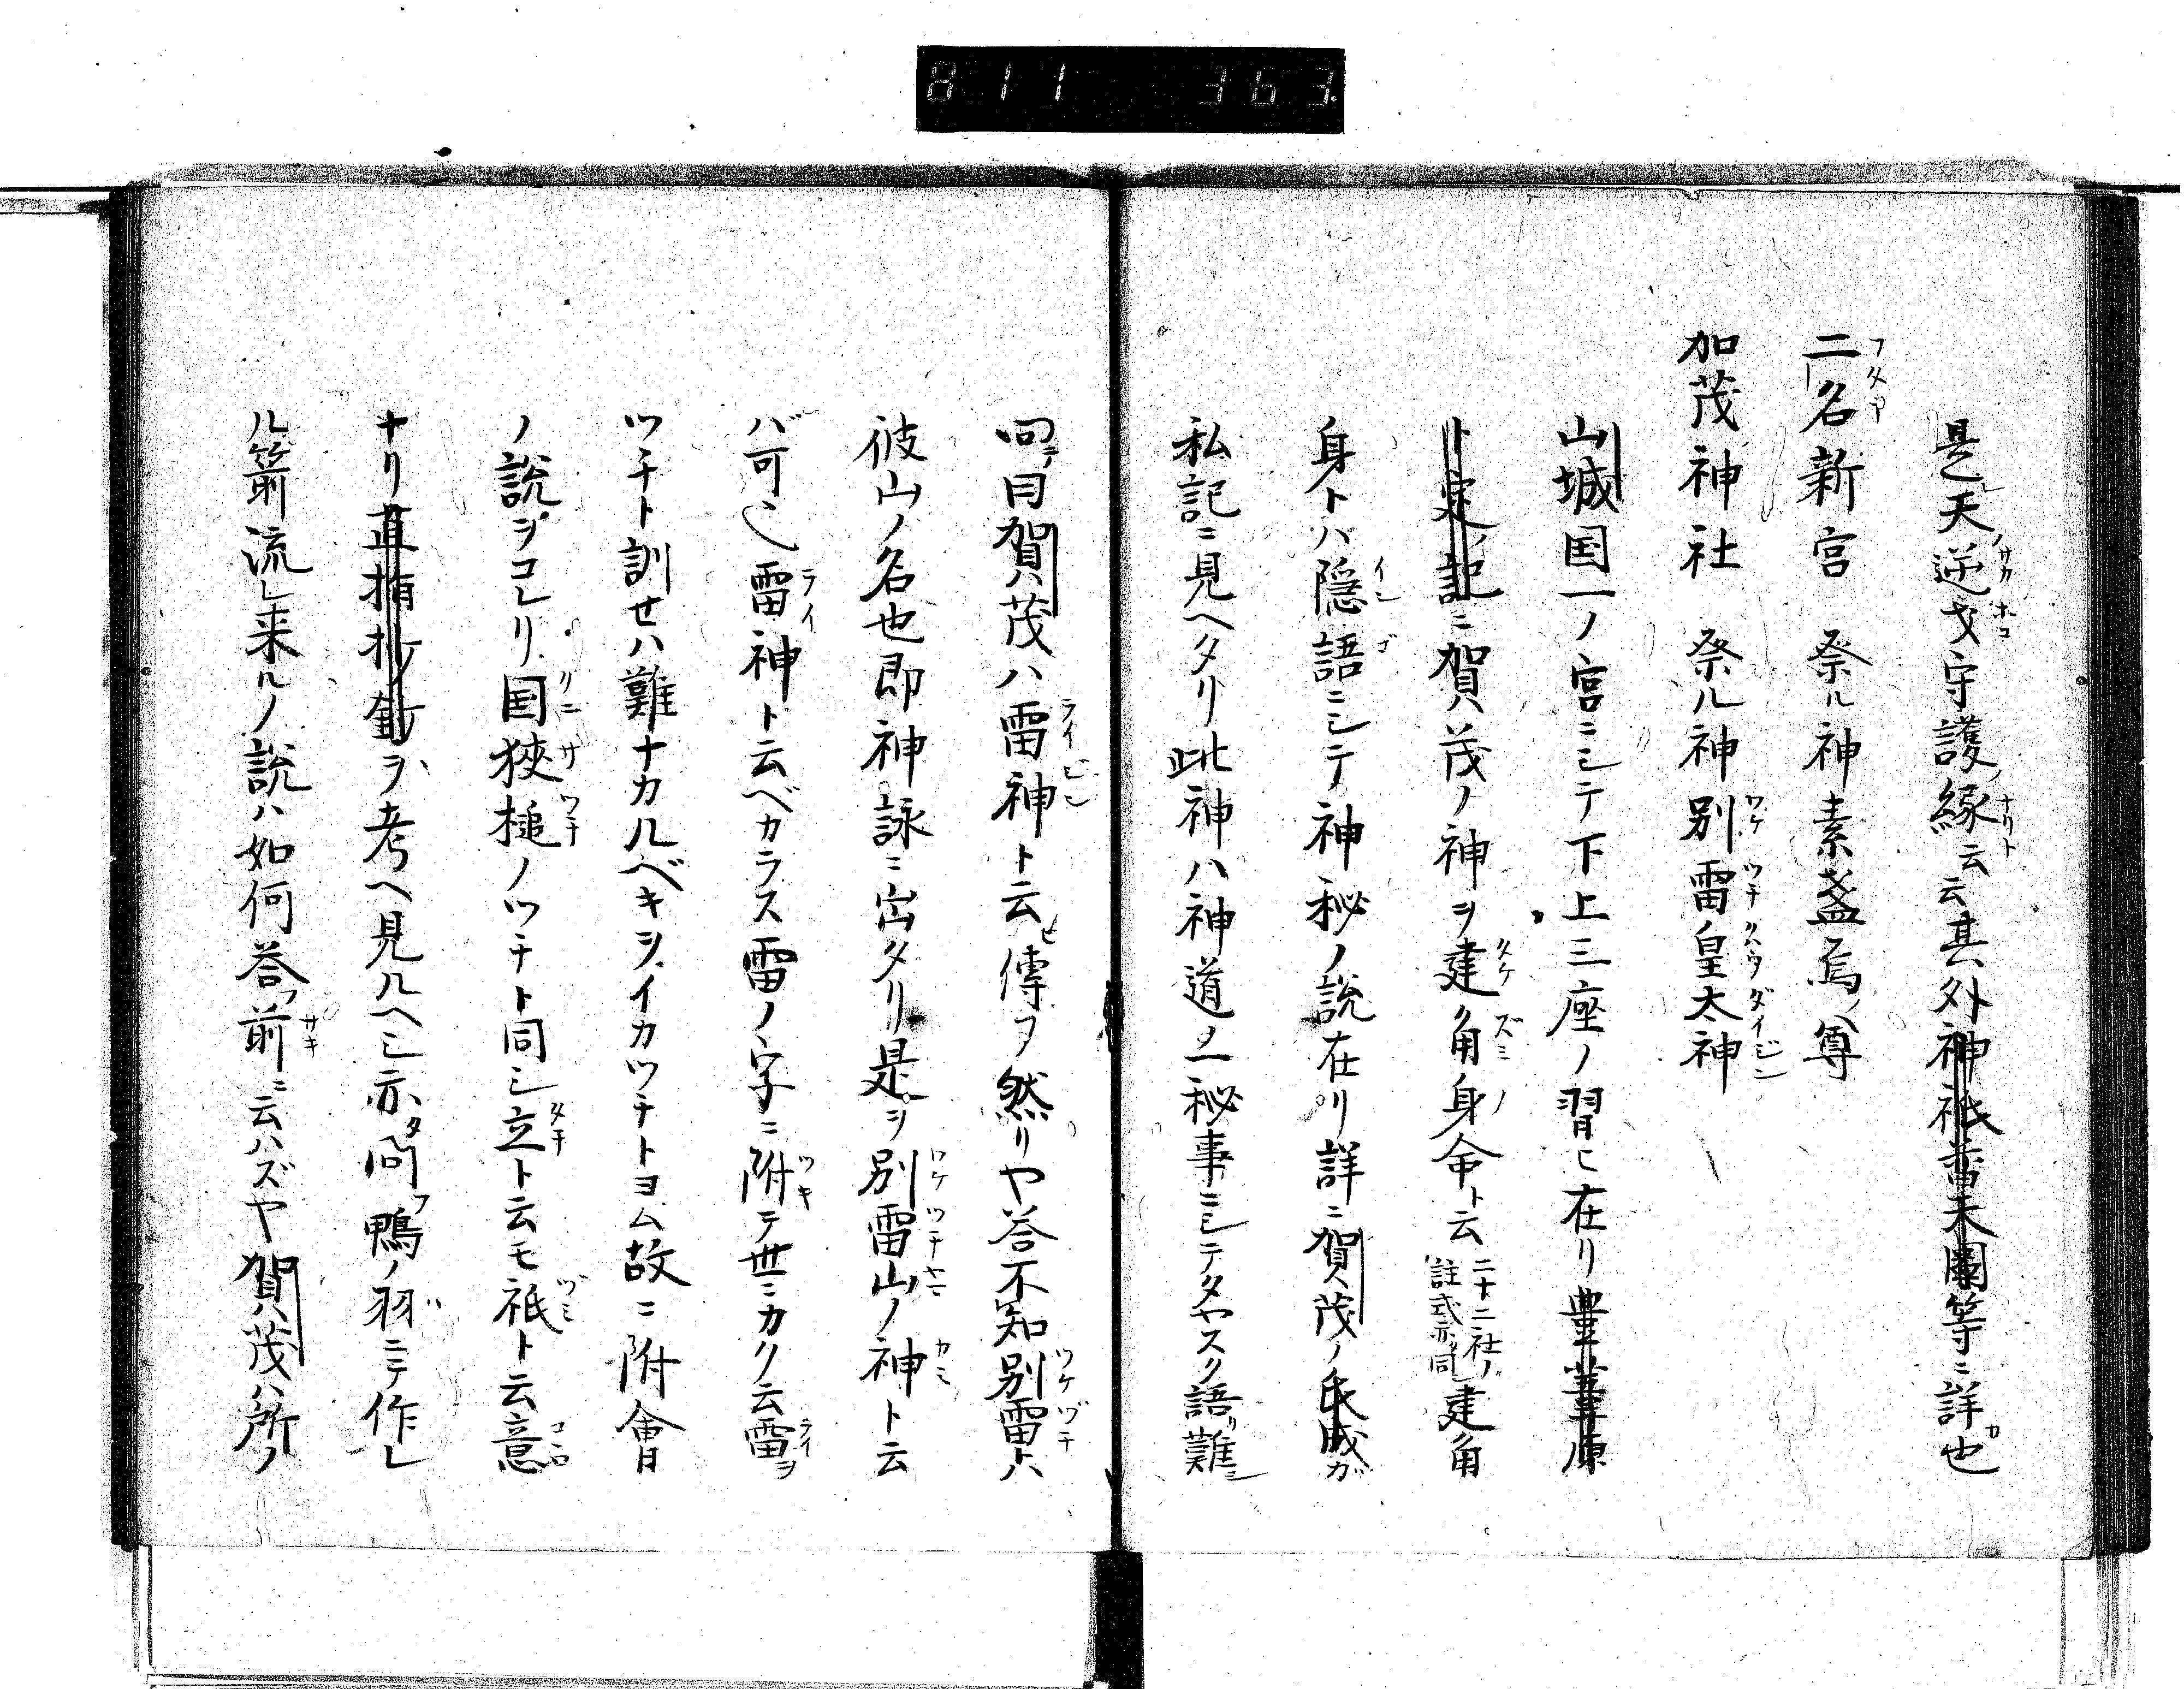 811 363
是レ天ノ逆戈守護ノ縁云云其外神祇蕃末圖等ニ詳也
二名新宮 祭ル神素盞烏ノ尊
加茂神社 祭ル神別雷皇太神
山城国一ノ宮ニシテ下上三座ノ習ヒ在リ豊葦原
ト定ノ記ニ賀茂ノ神ヲ建角身命ト云二十二社ノ註式亦同シ建角
身トハ隠語ニシテ神秘ノ説在リ詳ニ賀茂ノ氏成ガ
私記ニ見ヘタリ此神ハ神道ノ一秘事ニシテタヤスク語リ難シ
問テ曰賀茂ハ雷神ト云ヒ傳フ然リヤ答不知別雷トハ
彼山ノ名也即神詠ニ出タリ是ヲ別雷山ノ神ト云
バ可也雷神ト云ベカラス雷ノ字ニ附テ世ニカク云雷ヲ
ツチト訓セハ難ナカルベキヲイカツチトヨム故ニ附會
ノ説ヲコレリ国狹槌ノツチト同シ立ト云モ祇ト云意
ナリ直指抄ノ釿ヲ考ヘ見ルヘシ亦問フ鴨ノ羽ニテ作レ
ル箭流レ来ルノ説ハ如何答フ前ニ云ハズヤ賀茂ハ所ノ